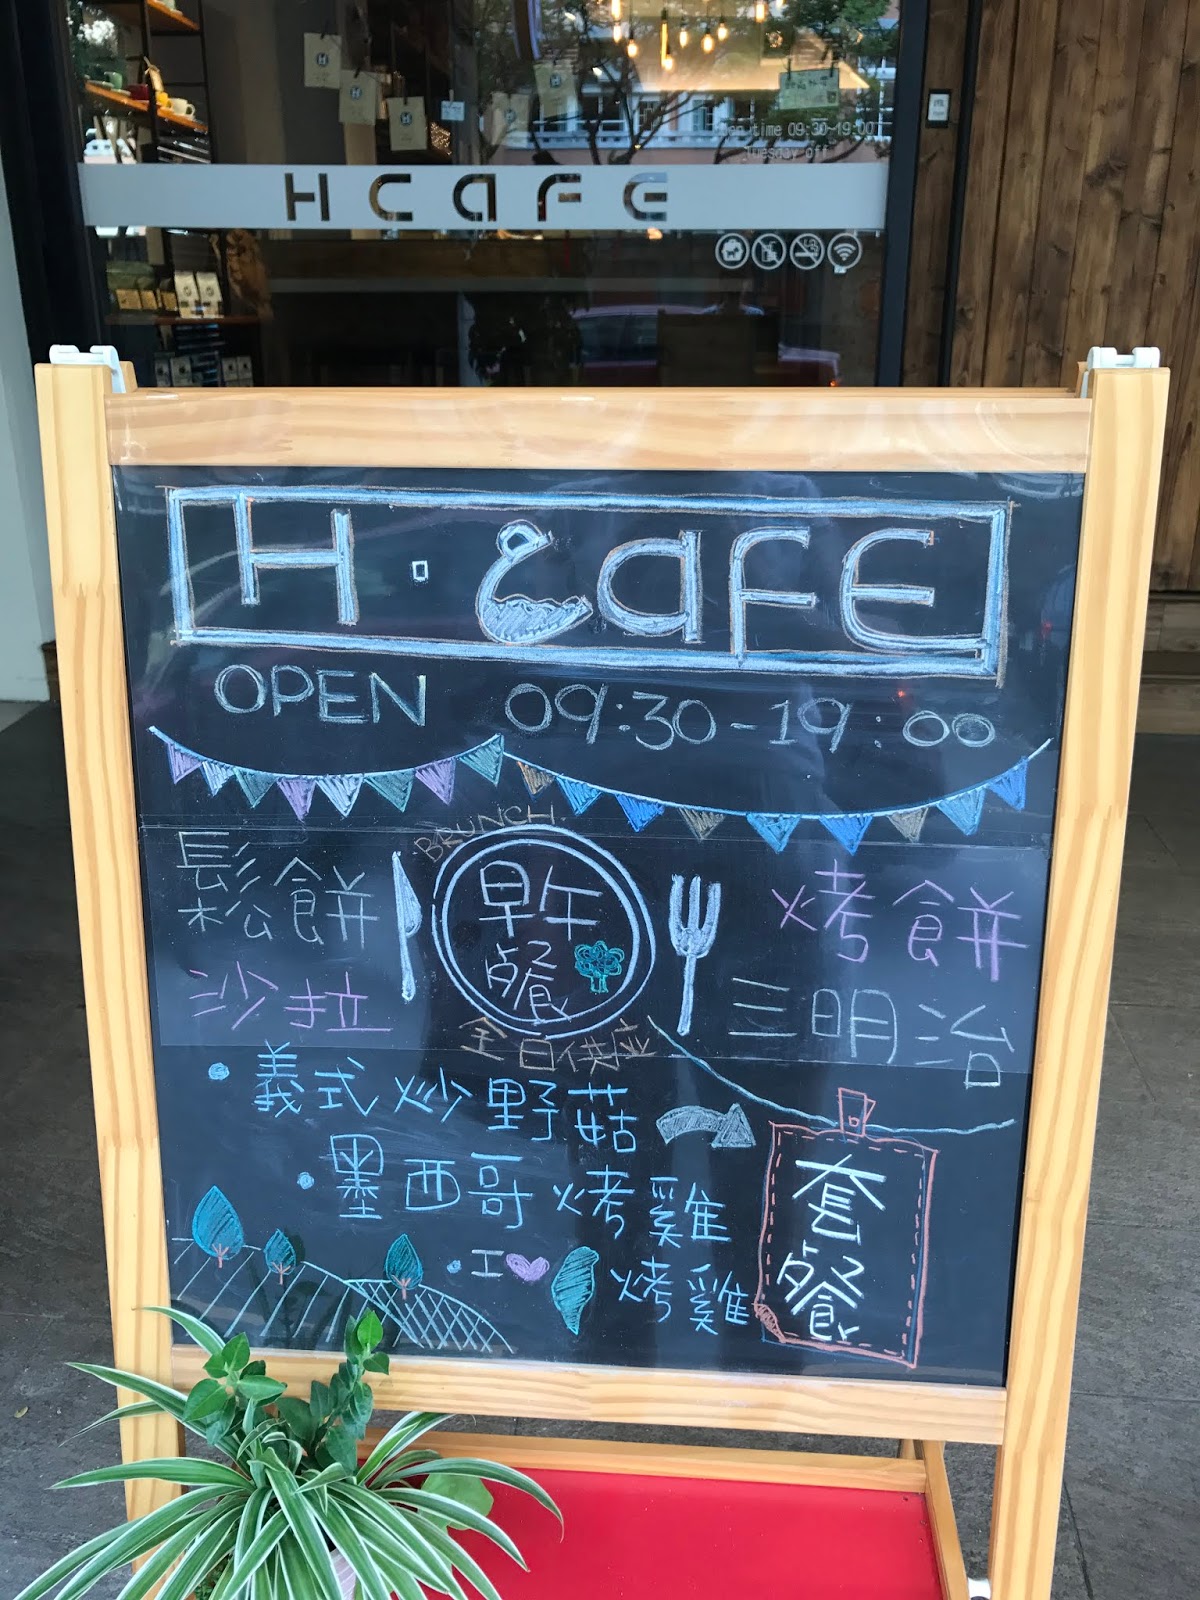 Open time 09:30-19:00
Tuesday off
H CAFE
H · CAFE
OPEN 09:30-19:00
BRUNCH.
鬆餅
沙拉
早午
餐
烤餅
三明治
全日供应
• 義式炒野菇
• 墨西哥烤雞
• I 烤雞
套餐